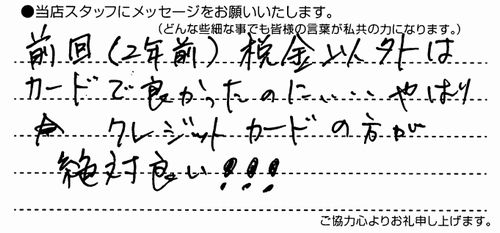 ●当店スタッフにメッセージをお願いいたします。
（どんな些細な事でも皆様の言葉が私共の力になります。）
前回（2年前）税金以外は
カードで良かったのに…… やはり
クレジットカードの方が
絶対良い!!!
ご協力心よりお礼申し上げます。